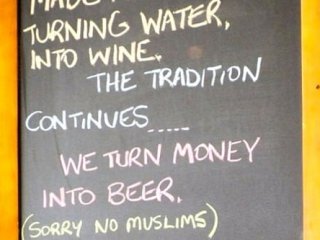 TURNING WATER,
INTO WINE.
THE TRADITION
CONTINUES.....
WE TURN MONEY
INTO BEER.
(SORRY NO MUSLIMS)